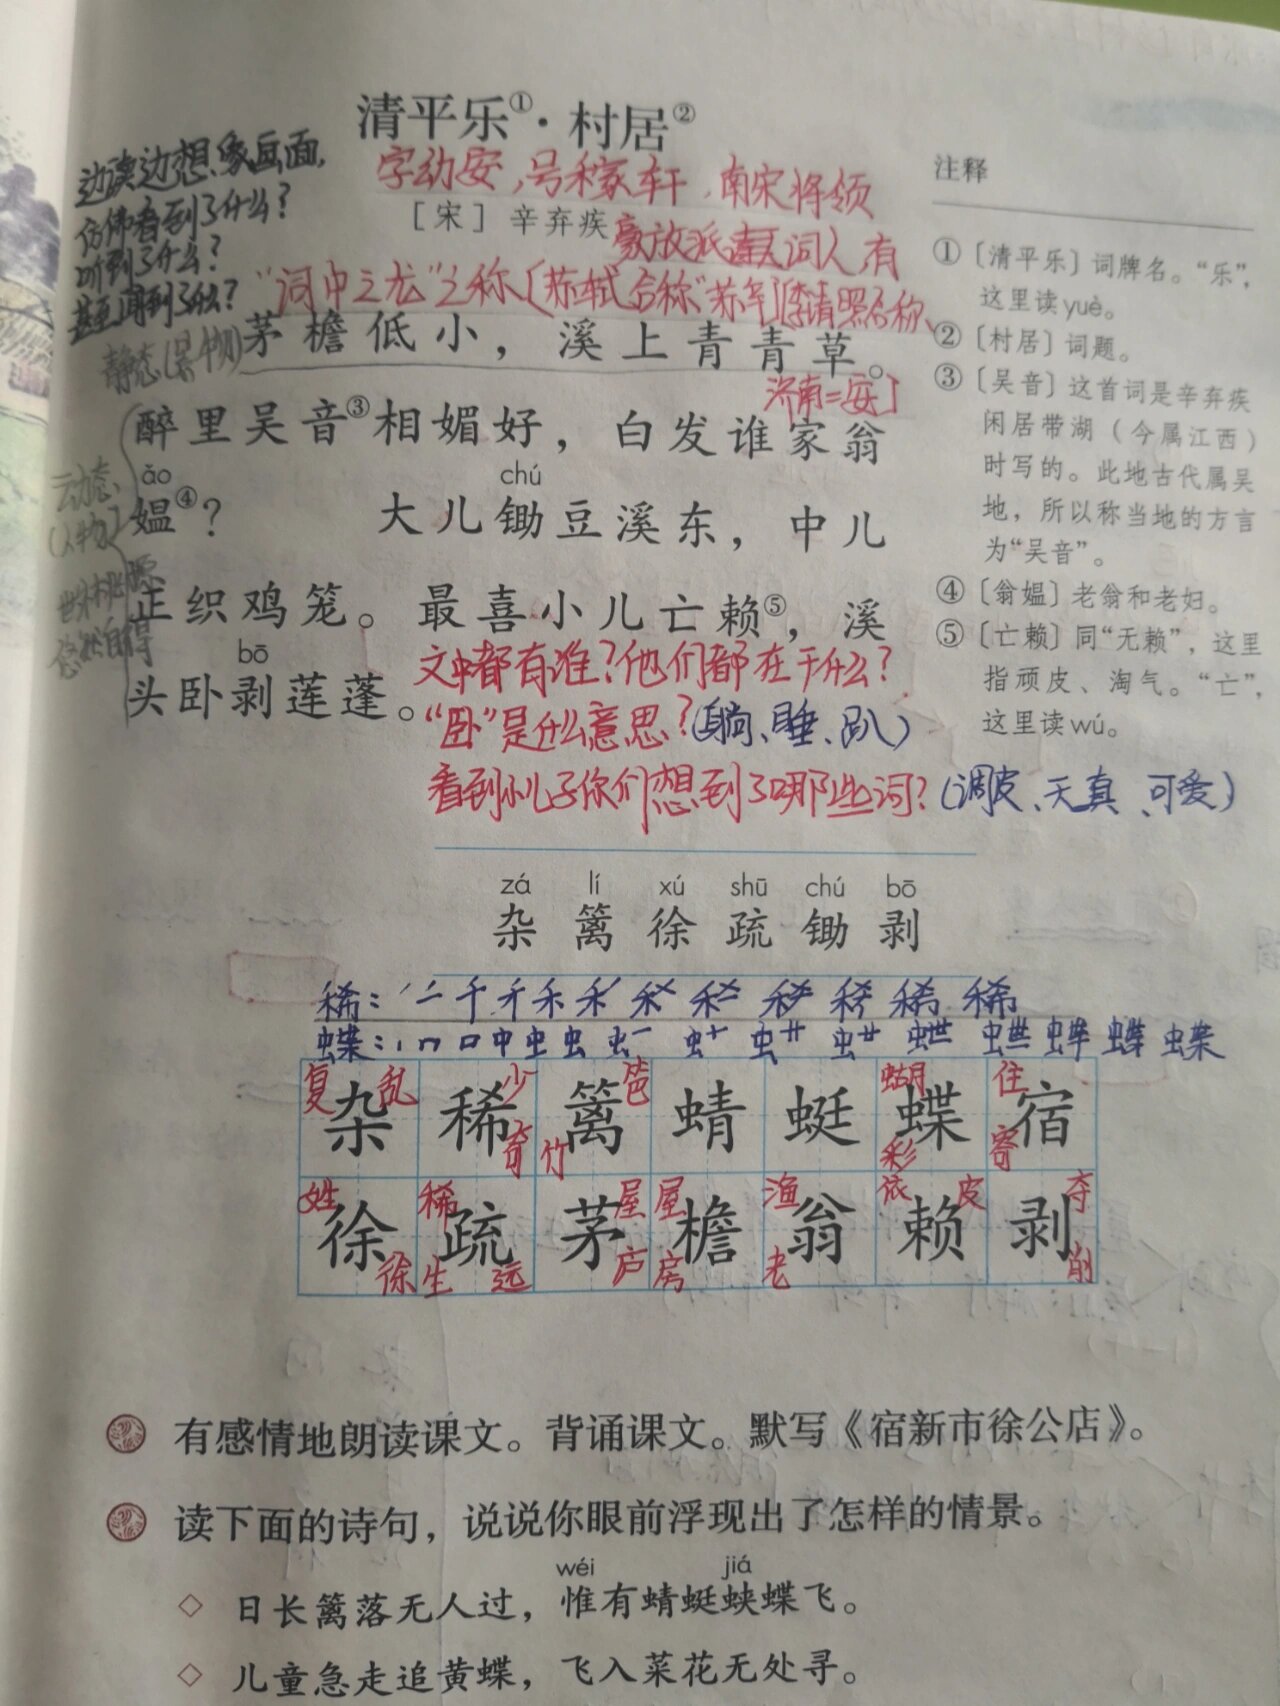 清平乐①·村居②
边读边想象画面,
仿佛看到了什么?
听到了什么?
甚至闻到了什么?
字幼安,号稼轩,南宋将领
[宋] 辛弃疾
豪放派 词人,有
“词中之龙”之称〔苏轼合称“苏辛”〕〔李清照合称
济南二安〕
静态(景物)
茅檐低小，溪上青青草。
醉里吴音③相媚好，白发谁家翁
ǎo
chú
媪④？ 大儿锄豆溪东，中儿
动态
(人物)
世外桃源
悠然自得
正织鸡笼。最喜小儿亡赖⑤，溪
bō
头卧剥莲蓬。
文中都有谁?他们都在干什么?
“卧”是什么意思?(躺、睡、趴)
看到小儿子你们想到了哪些词?(调皮、天真、可爱)
注释
①〔清平乐〕词牌名。“乐”，
这里读yuè。
②〔村居〕词题。
③〔吴音〕这首词是辛弃疾
闲居带湖（今属江西）
时写的。此地古代属吴
地，所以称当地的方言
为“吴音”。
④〔翁媪〕老翁和老妇。
⑤〔亡赖〕同“无赖”，这里
指顽皮、淘气。“亡”，
这里读wú。
zá lí xú shū chú bō
杂 篱 徐 疏 锄 剥
稀:
蝶:
复 杂 乱 稀 少 奇 篱 笆 竹 蜻 蜓 蝴 蝶 彩 住 宿 寄
姓 徐 徐 稀 疏 生 远 茅 屋 庐 屋 檐 房 渔 翁 老 依 赖 皮 剥 夺 削
有感情地朗读课文。背诵课文。默写《宿新市徐公店》。
读下面的诗句，说说你眼前浮现出了怎样的情景。
wéi jiá
◇ 日长篱落无人过，惟有蜻蜓蛱蝶飞。
◇ 儿童急走追黄蝶，飞入菜花无处寻。